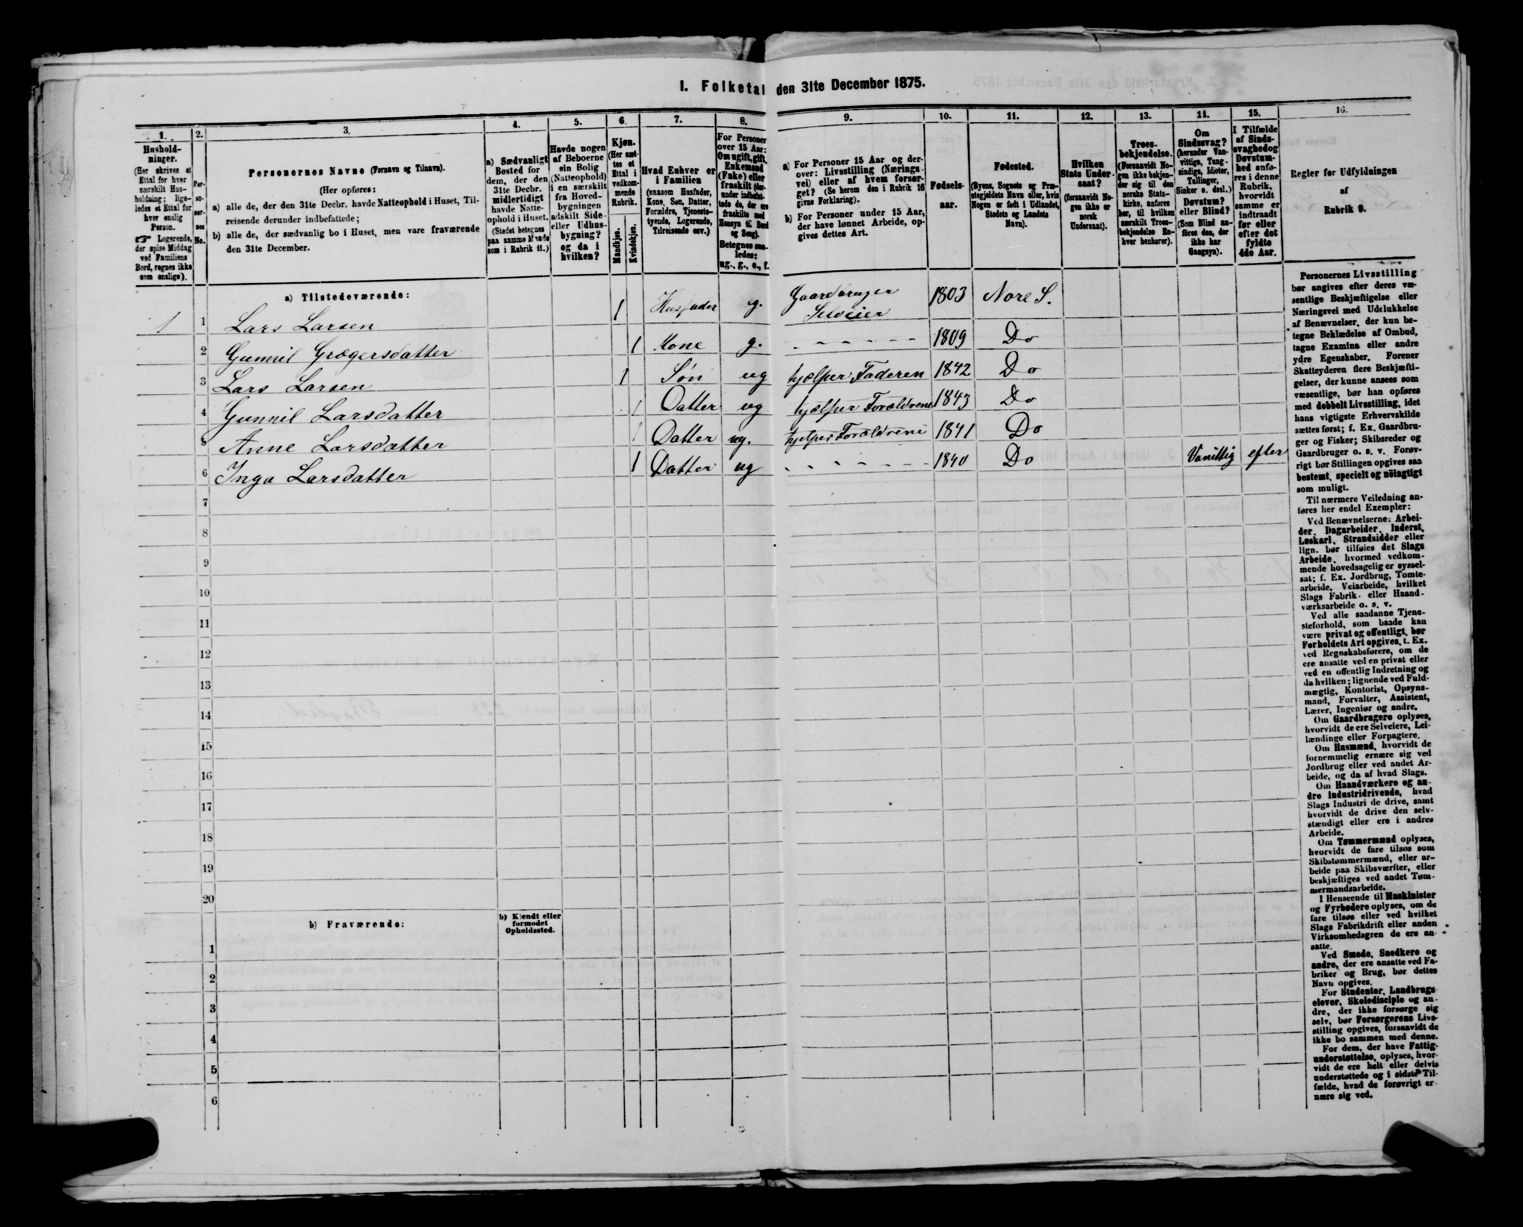 I. Folketal den 31te December 1875.
1. 2. 3. 4. 5. 6. 7. 8. 9. 10. 11. 12. 13. 14. 15. 16.
Hushold-
ninger.
(Her skrives et
Ettal for hver
særskilt Hus-
holdning; lige-
ledes et Ettal for
hver enslig
Person.
☞ Logerende,
der spise Middag
ved Familiens
Bord, regnes ikke
som enslige).
Per-
so-
ner-
nes
No.
Personernes Navne (Fornavn og Tilnavn).
(Her opføres:
a) alle de, der den 31te Decbr. havde Natteophold i Huset, Til-
reisende derunder indbefattede;
b) alle de, der sædvanlig bo i Huset, men vare fraværende
den 31te December.
a) Sædvanligt
Bosted for
dem, der den
31te Decbr.
midlertidigt
havde Natte-
ophold i Huset.
(Stedet betegnes
paa samme Maade
som i Rubrik 11.)
Havde nogen
af Beboerne
sin Bolig
(Natteophold)
i en særskilt
fra Hoved-
bygningen
adskilt Side-
eller Udhus-
bygning?
og da i
hvilken?
Kjøn.
(Her sæt-
tes et
Ettal i
vedkom-
mende
Rubrik.
Mandkjøn.
Kvindekjøn.
Hvad Enhver er
i Familien
(saasom Husfader,
Kone, Søn, Datter,
Forældre, Tjeneste-
tyende, Logerende,
Tilreisende osv.)
For Personer
over 15 Aar:
Om ugift, gift,
Enkemand
(Enke) eller
fraskilt (der-
under indbefat-
tede de, der ere
fraskilte med
Hensyn til Bord
og Seng).
Betegnes saa-
ledes:
ug., g., e., f.
a) For Personer 15 Aar og der-
over: Livsstilling (Nærings-
vei) eller af hvem forsør-
get? (Se herom den i Rubrik 16
givne Forklaring).
b) For Personer under 15 Aar,
der have lønnet Arbeide, op-
gives dettes Art.
Fødsels-
aar.
Fødested.
(Byens, Sognets og Præ-
stegjældets Navn eller, hvis
Nogen er født i Udlandet,
Stedets og Landets
Navn).
Hvilken
Stats Under-
saat?
(forsaavidt No-
gen ikke er
norsk
Undersaat).
Troes-
bekjendelse.
(Forsaavidt No-
gen ikke bekjen-
der sig til den
norske Stats-
kirke, anføres
her, til hvilken
særskilt Troes-
bekjendelse En-
hver henhører).
Om
Sindssvag?
(herunder Van-
vittige, Tung-
sindige, Idioter,
Tullinger,
Sinker o. desl.)
Døvstum?
eller Blind?
(Som Blind an-
føres den, der
ikke har
Gangsyn).
I Tilfælde
af Sinds-
svaghed og
Døvstum-
hed anfø-
res i denne
Rubrik,
hvorvidt
samme er
indtraadt
før eller
efter det
fyldte
4de Aar.
Regler for Udfyldningen
af
Rubrik 9.
a) Tilstedeværende:
1 1 Lars Larsen 1 Husfader g. Gaardbruger Selveier 1803 Nore S.
2 Gunnil Grøgersdatter 1 Kone g. - - - - - - 1809 Do
3 Lars Larsen 1 Søn ug hjælper Faderen 1842 Do
4 Gunnil Larsdatter 1 Datter ug hjælper Forældrene 1843 Do
5 Anne Larsdatter 1 Datter ug. hjelper Forældrene 1841 Do
6 Inga Larsdatter 1 Datter ug - - - - - - 1840 Do Vanittig efter
7
8
9
10
11
12
13
14
15
16
17
18
19
20
b) Fraværende:
b) Kjendt eller
formodet
Opholdssted.
1
2
3
4
5
6
Personernes Livsstilling
bør angives efter deres væ-
sentlige Beskjæftigelse eller
Næringsvei med Udelukkelse
af Benævnelser, der kun be-
tegne Beklædelse af Ombud,
tagne Examina eller andre
ydre Egenskaber. Forener
Skatteyderen flere Beskjæfti-
gelser, der kunne ansees som
væsentlige, bør han opføres
med dobbelt Livsstilling, idet
hans vigtigste Erhvervskilde
sættes først; f. Ex. Gaardbru-
ger og Fisker; Skibsreder og
Gaardbruger o. s. v. Forøv-
rigt bør Stillingen opgives saa
bestemt, specielt og nøiagtigt
som muligt.
Til nærmere Veiledning an-
føres her endel Exempler:
Ved Benævnelserne: Arbei-
der, Dagarbeider, Inderst,
Løskarl, Strandsidder eller
lign. bør tilføies det Slags
Arbeide, hvormed vedkom-
mende hovedsagelig er syssel-
sat; f. Ex. Jordbrug, Tomte-
arbeide, Veiarbeide, hvilket
Slags Fabrik- eller Haand-
værksarbeide o. s. v.
Ved alle saadanne Tjene-
steforhold, som baade kan
være privat og offentligt, bør
Forholdets Art opgives, f. Ex.
ved Regnskabsførere, om de
ere ansatte ved en privat eller
ved en offentlig Indretning og
da hvilken; lignende ved Fuld-
mægtig, Kontorist, Opsyns-
mand, Forvalter, Assistent,
Lærer, Ingeniør og andre.
Om Gaardbrugere oplyses,
hvorvidt de ere Selveiere, Lei-
lændinge eller Forpagtere.
Om Husmænd, hvorvidt de
fornemmelig ernære sig ved
Jordbrug eller ved andet Ar-
beide, og da af hvad Slags.
Om Haandværkere og an-
dre Industridrivende, hvad
Slags Industri de drive, samt
hvorvidt de drive den selv-
stændigt eller ere i andres
Arbeide.
Om Tømmermænd oplyses,
hvorvidt de fare tilsøs som
Skibstømmermænd, eller ar-
beide paa Skibsværfter, eller
beskjæftiges ved andet Tøm-
mermandsarbeide.
I Henseende til Maskinister
og Fyrbødere oplyses, om de
fare tilsøs eller ved hvilket
Slags Fabrikdrift eller anden
Virksomhedsgren de ere an-
satte.
Ved Smede, Snedkere og
andre, der ere ansatte ved Fa-
briker og Brug, bør dettes
Navn opgives.
For Studenter, Landbrugs-
elever, Skoledisciple og an-
dre, der ikke forsørge sig
selv, bør Forsørgerens Livs-
stilling opgives, forsaavidt de
ikke bo sammen med denne.
For dem, der have Fattig-
understøttelse, oplyses, hvor-
vidt de ere helt eller delvis
understøttede og i sidste Til-
fælde, hvad de forøvrigt er-
nære sig ved.